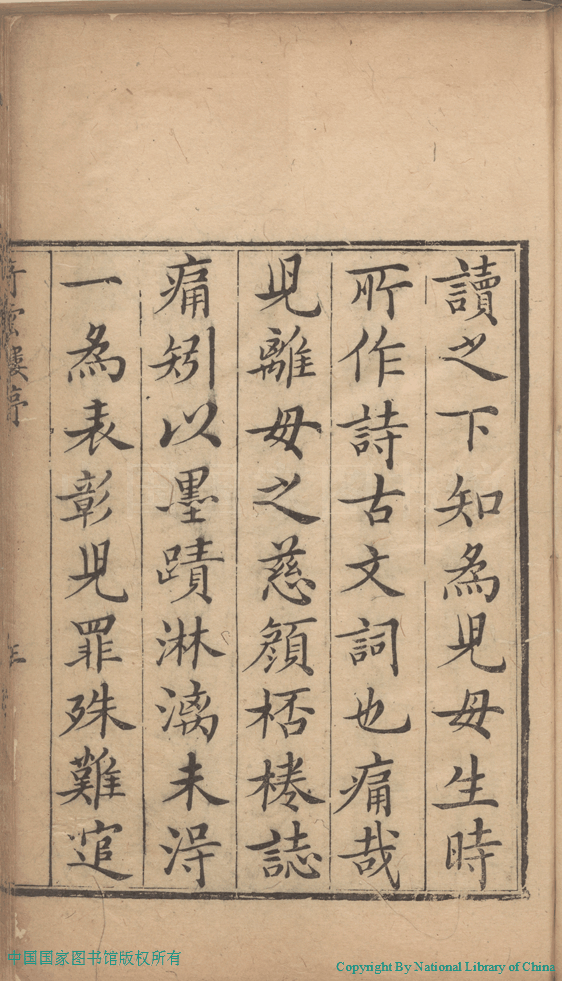 讀之下知為兒母生時
所作詩古文詞也痛哉
兒離母之慈顏桮棬誌
痛矧以墨蹟淋漓未得
一為表彰兒罪殊難逭
中国国家图书馆版权所有
Copyright By National Library of China